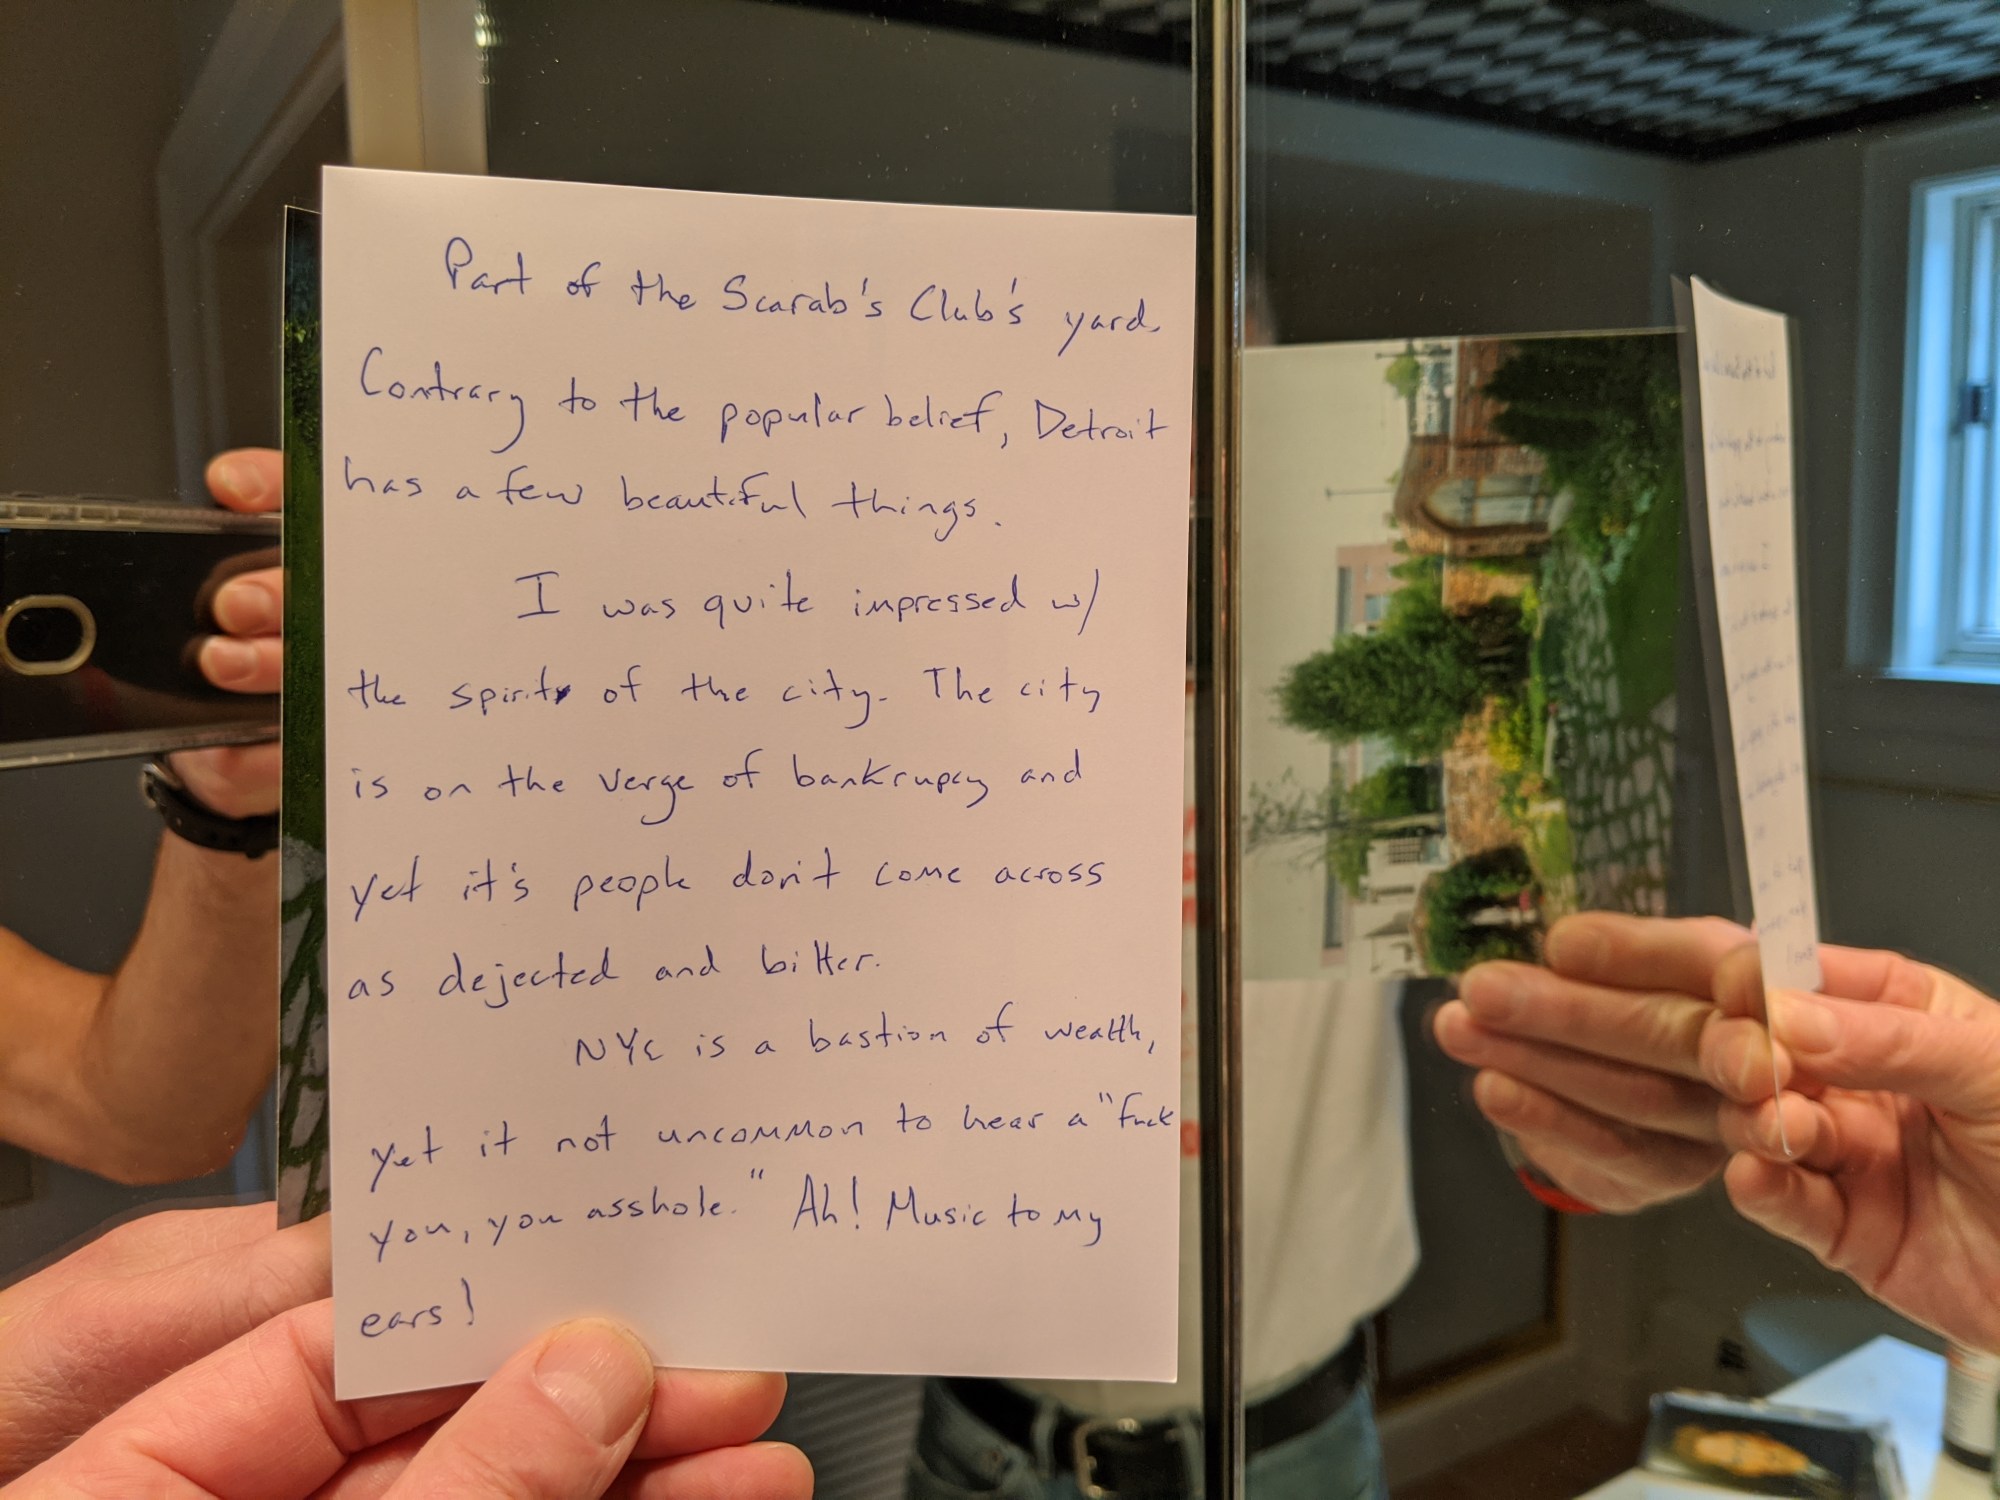 Part of the Scarab's Club's yard.
Contrary to the popular belief, Detroit
has a few beautiful things.
I was quite impressed w/
the spirit of the city. The city
is on the verge of bankrupcy and
yet it's people don't come across
as dejected and bitter.
NYC is a bastion of wealth,
yet it not uncommon to hear a "fuck
you, you asshole." Ah! Music to my
ears!